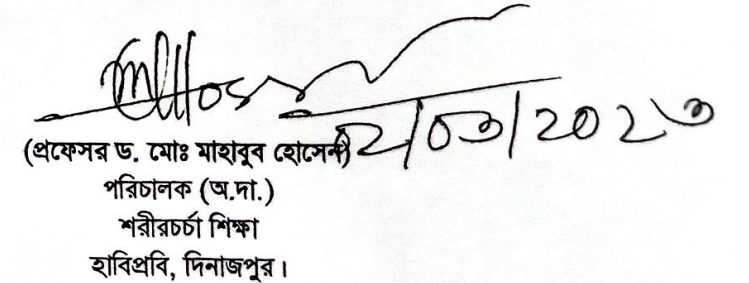 (প্রফেসর ড. মোঃ মাহাবুব হোসেন)
পরিচালক (অ.দা.)
শরীরচর্চা শিক্ষা
হাবিপ্রবি, দিনাজপুর।